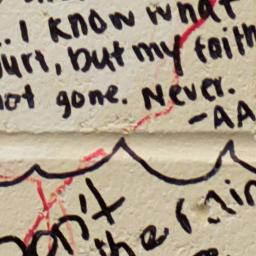 . I know what
urt, but my faith
ot gone. Never.
-AA
on't
the rain